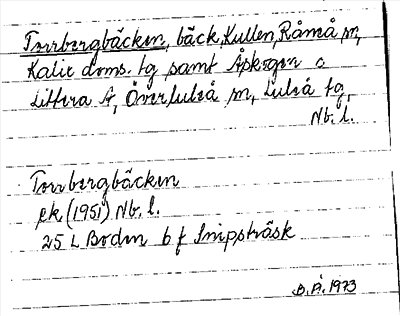 Torrbergbäcken, bäck, Kullen, Råneå sn,
Kalix doms. tg samt Åskogen o
Littera A, Överluleå sn, Luleå tg,
Nb. l.
Torrbergbäcken
ek (1951) Nb. l.
25 L Boden b f Snipsträsk
B.Å. 1973